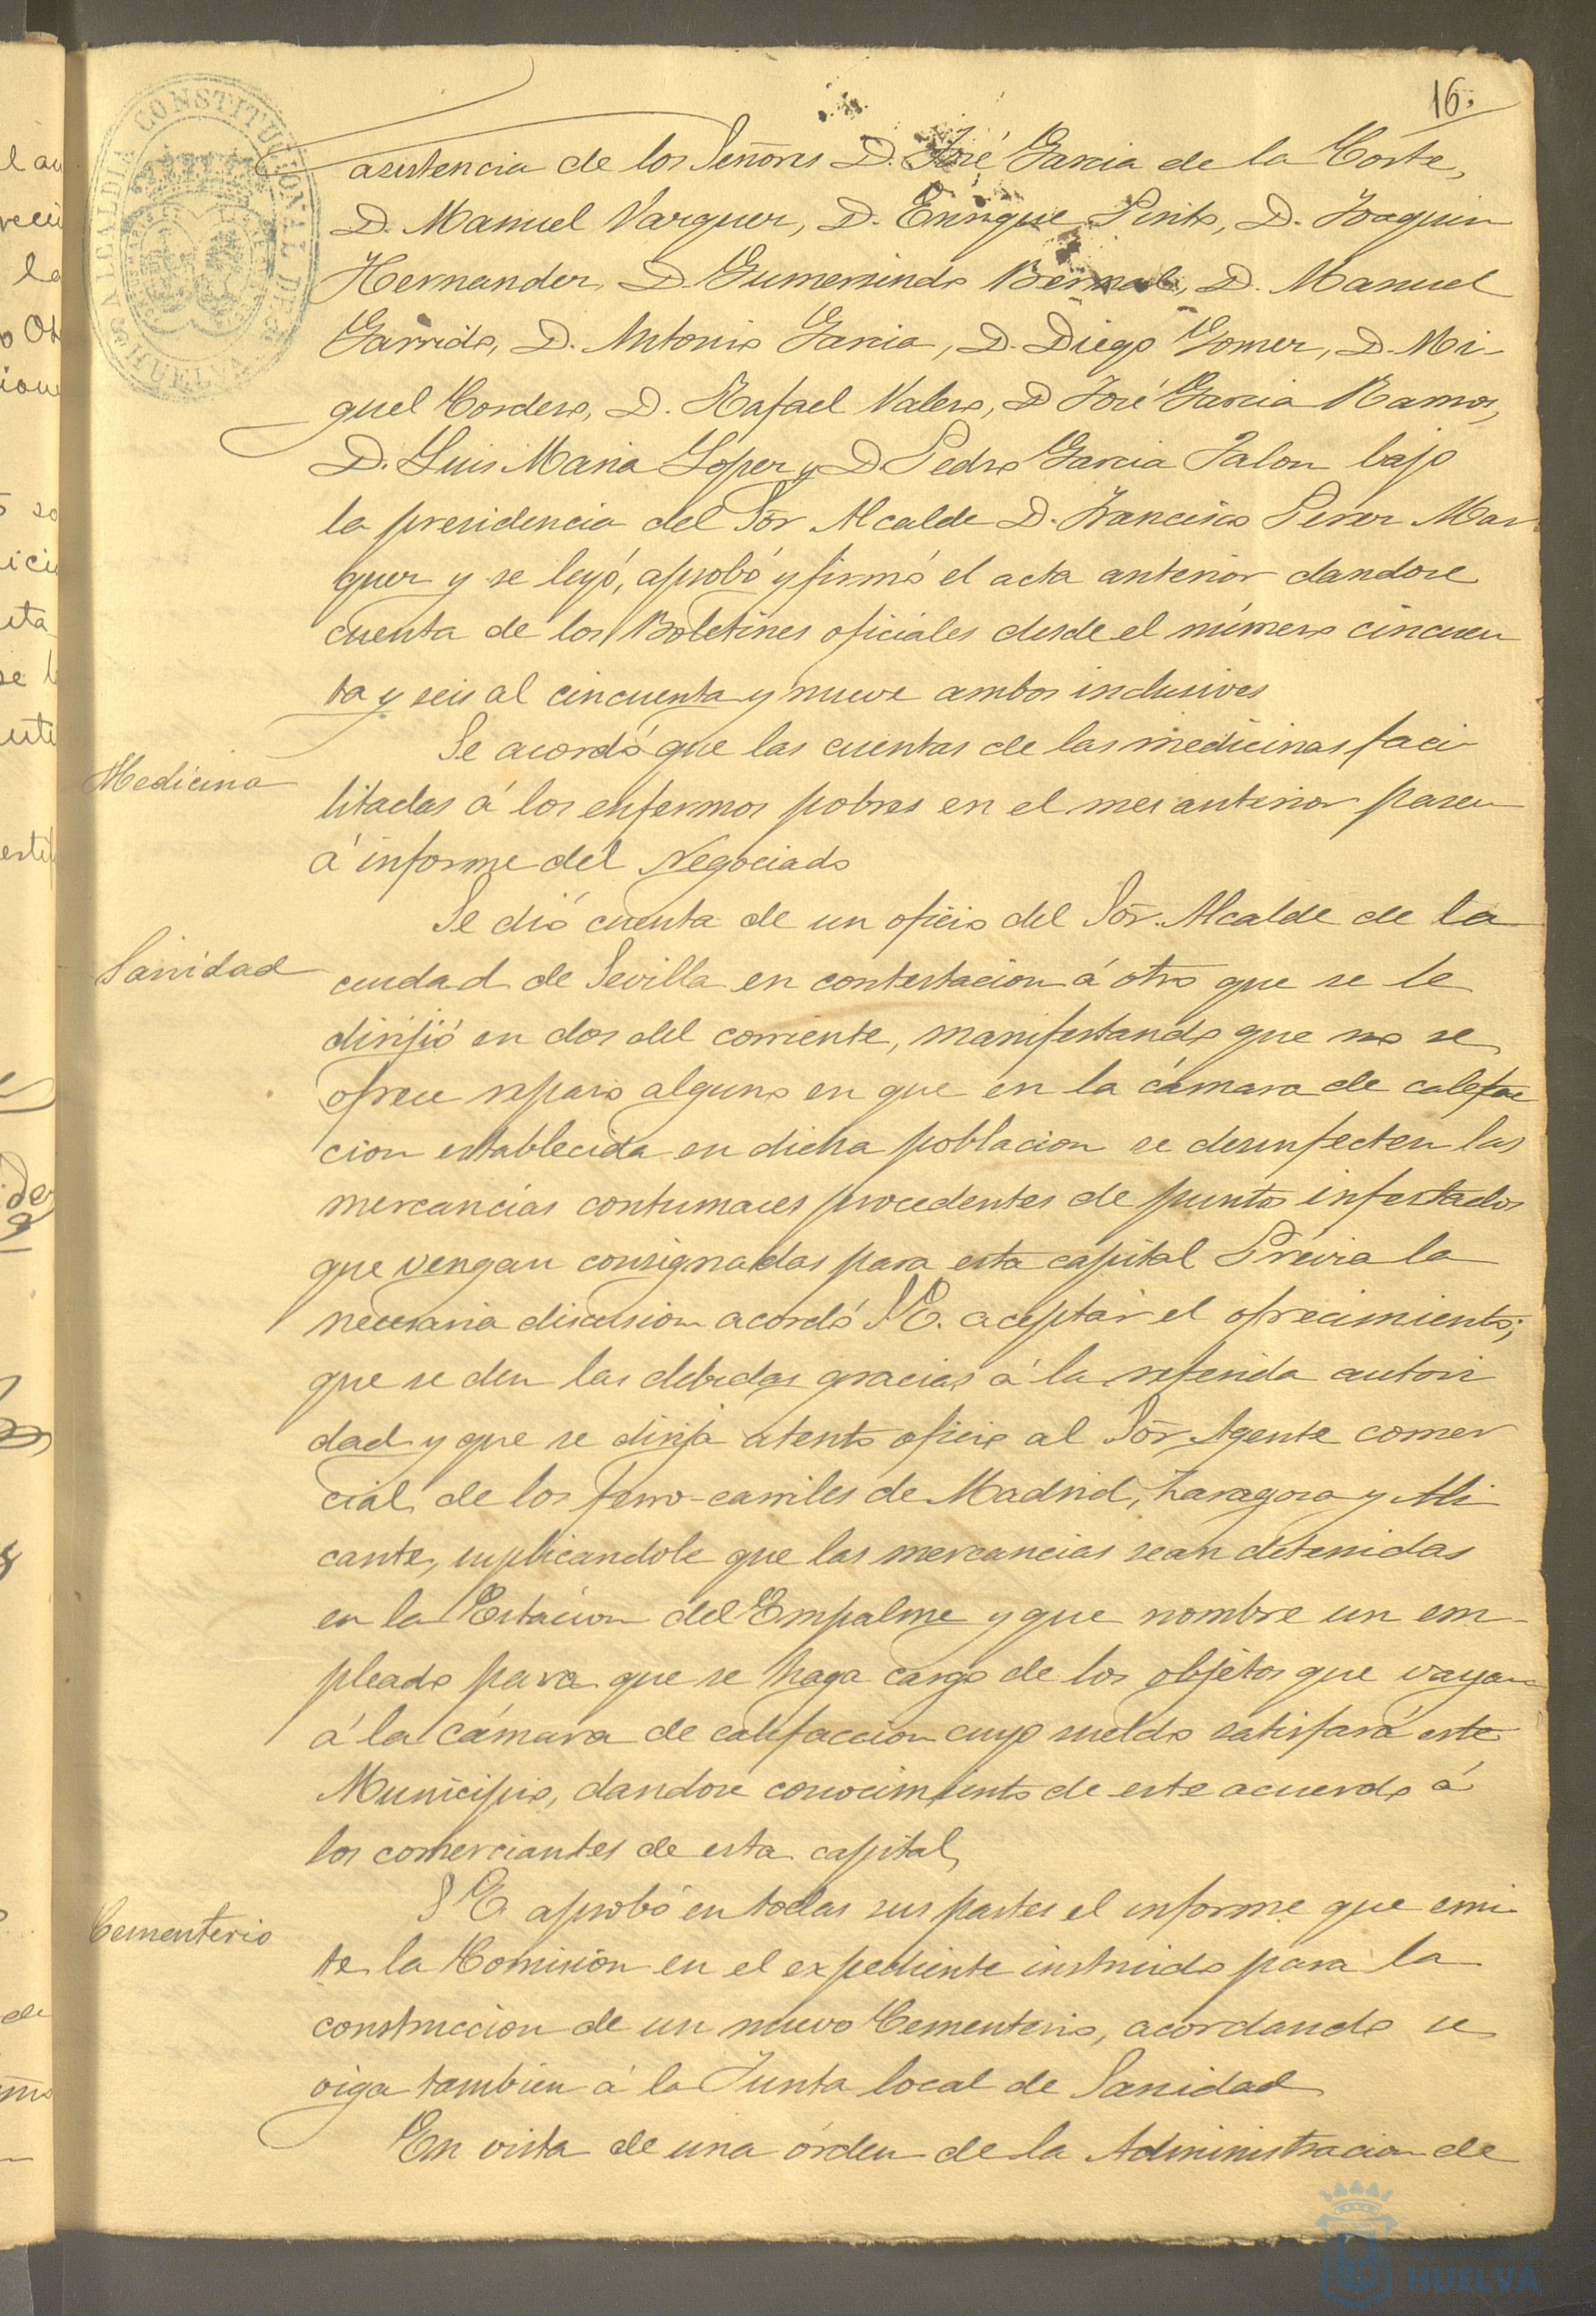 16.
ALCALDIA CONSTITUCIONAL DE HUELVA
asistencia de los Señores D. José Garcia de la Corte,
D. Manuel Vazquez, D. Enrique Pinto, D. Joaquin
Hernandez, D. Gumersindo Bernal, D. Manuel
Garrido, D. Antonio Garcia, D. Diego Gomez, D. Mi-
guel Cordero, D. Rafael Valero, D José Garcia Ramos,
D. Luis Maria Lopez y D Pedro Garcia Jalon bajo
la presidencia del Sor Alcalde D. Francisco Perez Mar
quez y se leyó, aprobó y firmó el acta anterior dandose
cuenta de los Boletines oficiales desde el número cincuen
ta y seis al cincuenta y nueve ambos inclusives
Medicina
Se acordó que las cuentas de las medicinas faci-
litadas á los enfermos pobres en el mes anterior pasen
á informe del Negociado
Sanidad
Se dió cuenta de un oficio del Sor. Alcalde de la
ciudad de Sevilla en contestacion á otro que se le
dirijió en dos del corriente, manifestando que no se
ofrece reparo alguno en que en la cámara de calefac
cion establecida en dicha poblacion se desinfecten las
mercancias contumaces procedentes de puntos infestados
que vengan consignadas para esta capital Previa la
necesaria discusion acordó S E. aceptar el ofrecimiento;
que se den las debidas gracias á la referida autori
dad y que se dirija atento oficio al Sor Agente comer
cial de los ferro-carriles de Madrid, Zaragoza y Ali
cante, suplicandole que las mercancias sean detenidas
en la Estacion del Empalme y que nombre un em-
pleado para que se haga cargo de los objetos que vayan
á la cámara de calefaccion cuyo sueldo satisfará este
Municipio, dandose conocimiento de este acuerdo á
los comerciantes de esta capital,
Cementerio
S E aprobó en todas sus partes el informe que emi-
te la Comision en el expediente instruido para la
construccion de un nuevo Cementerio, acordando se
oiga tambien á la Junta local de Sanidad
En vista de una órden de la Administracion de
HUELVA